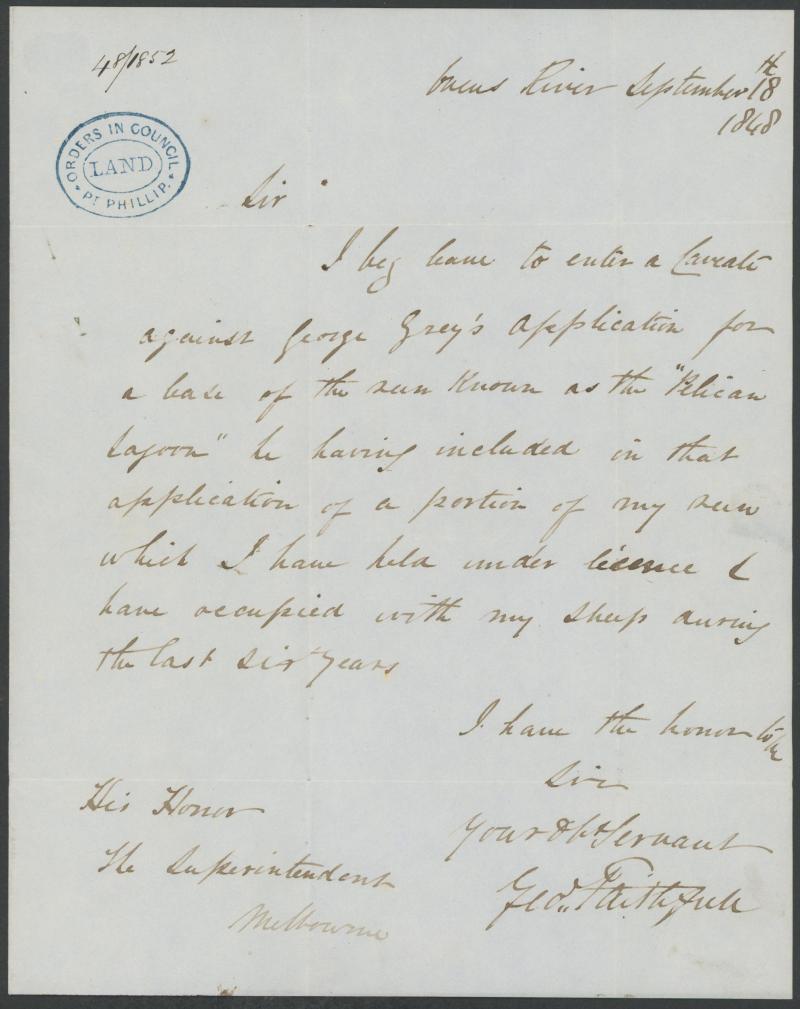 48/1852
Ovens River September 18th
1848
ORDERS IN COUNCIL
LAND
PT PHILLIP.
Sir
I beg leave to enter a Caveat
against George Grey's application for
a lease of the run Known as the "Pelican
Lagoon" he having included in that
application of a portion of my run
which I have held under licence &
have occupied with my sheep during
the last six years
I have the honor to be
Sir
Your Obt Servant
Geo. Faithfull
His Honor
The Superintendent
Melbourne